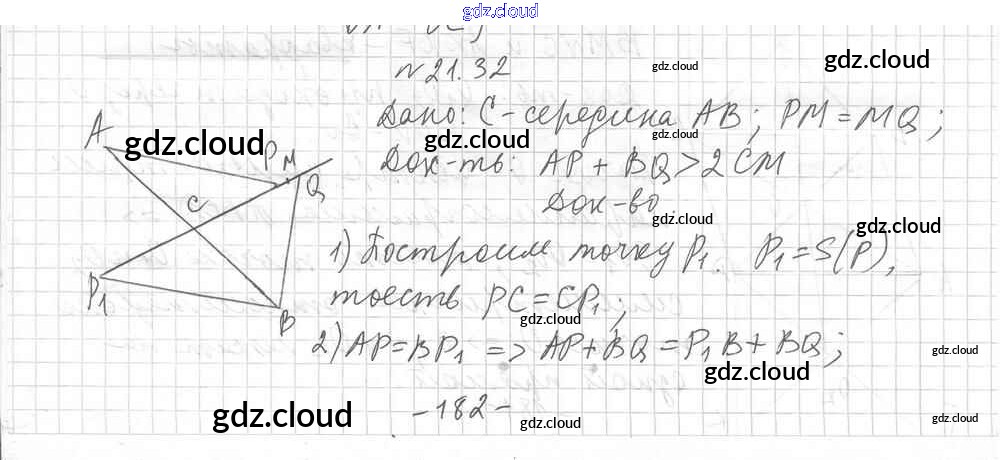 gdz.cloud
№ 21.32
gdz.cloud gdz.cloud
Дано: C - середина AB; PM = MQ;
gdz.cloud gdz.cloud gdz.cloud
Док-ть: AP + BQ > 2CM
Док-во.
gdz.cloud gdz.cloud
1) Построим точку P₁. P₁ = S(P),
тоесть PC = CP₁;
gdz.cloud
2) AP = BP₁ => AP + BQ = P₁B + BQ;
gdz.cloud gdz.cloud
- 182 -
gdz.cloud gdz.cloud gdz.cloud
A P M Q C P₁ B